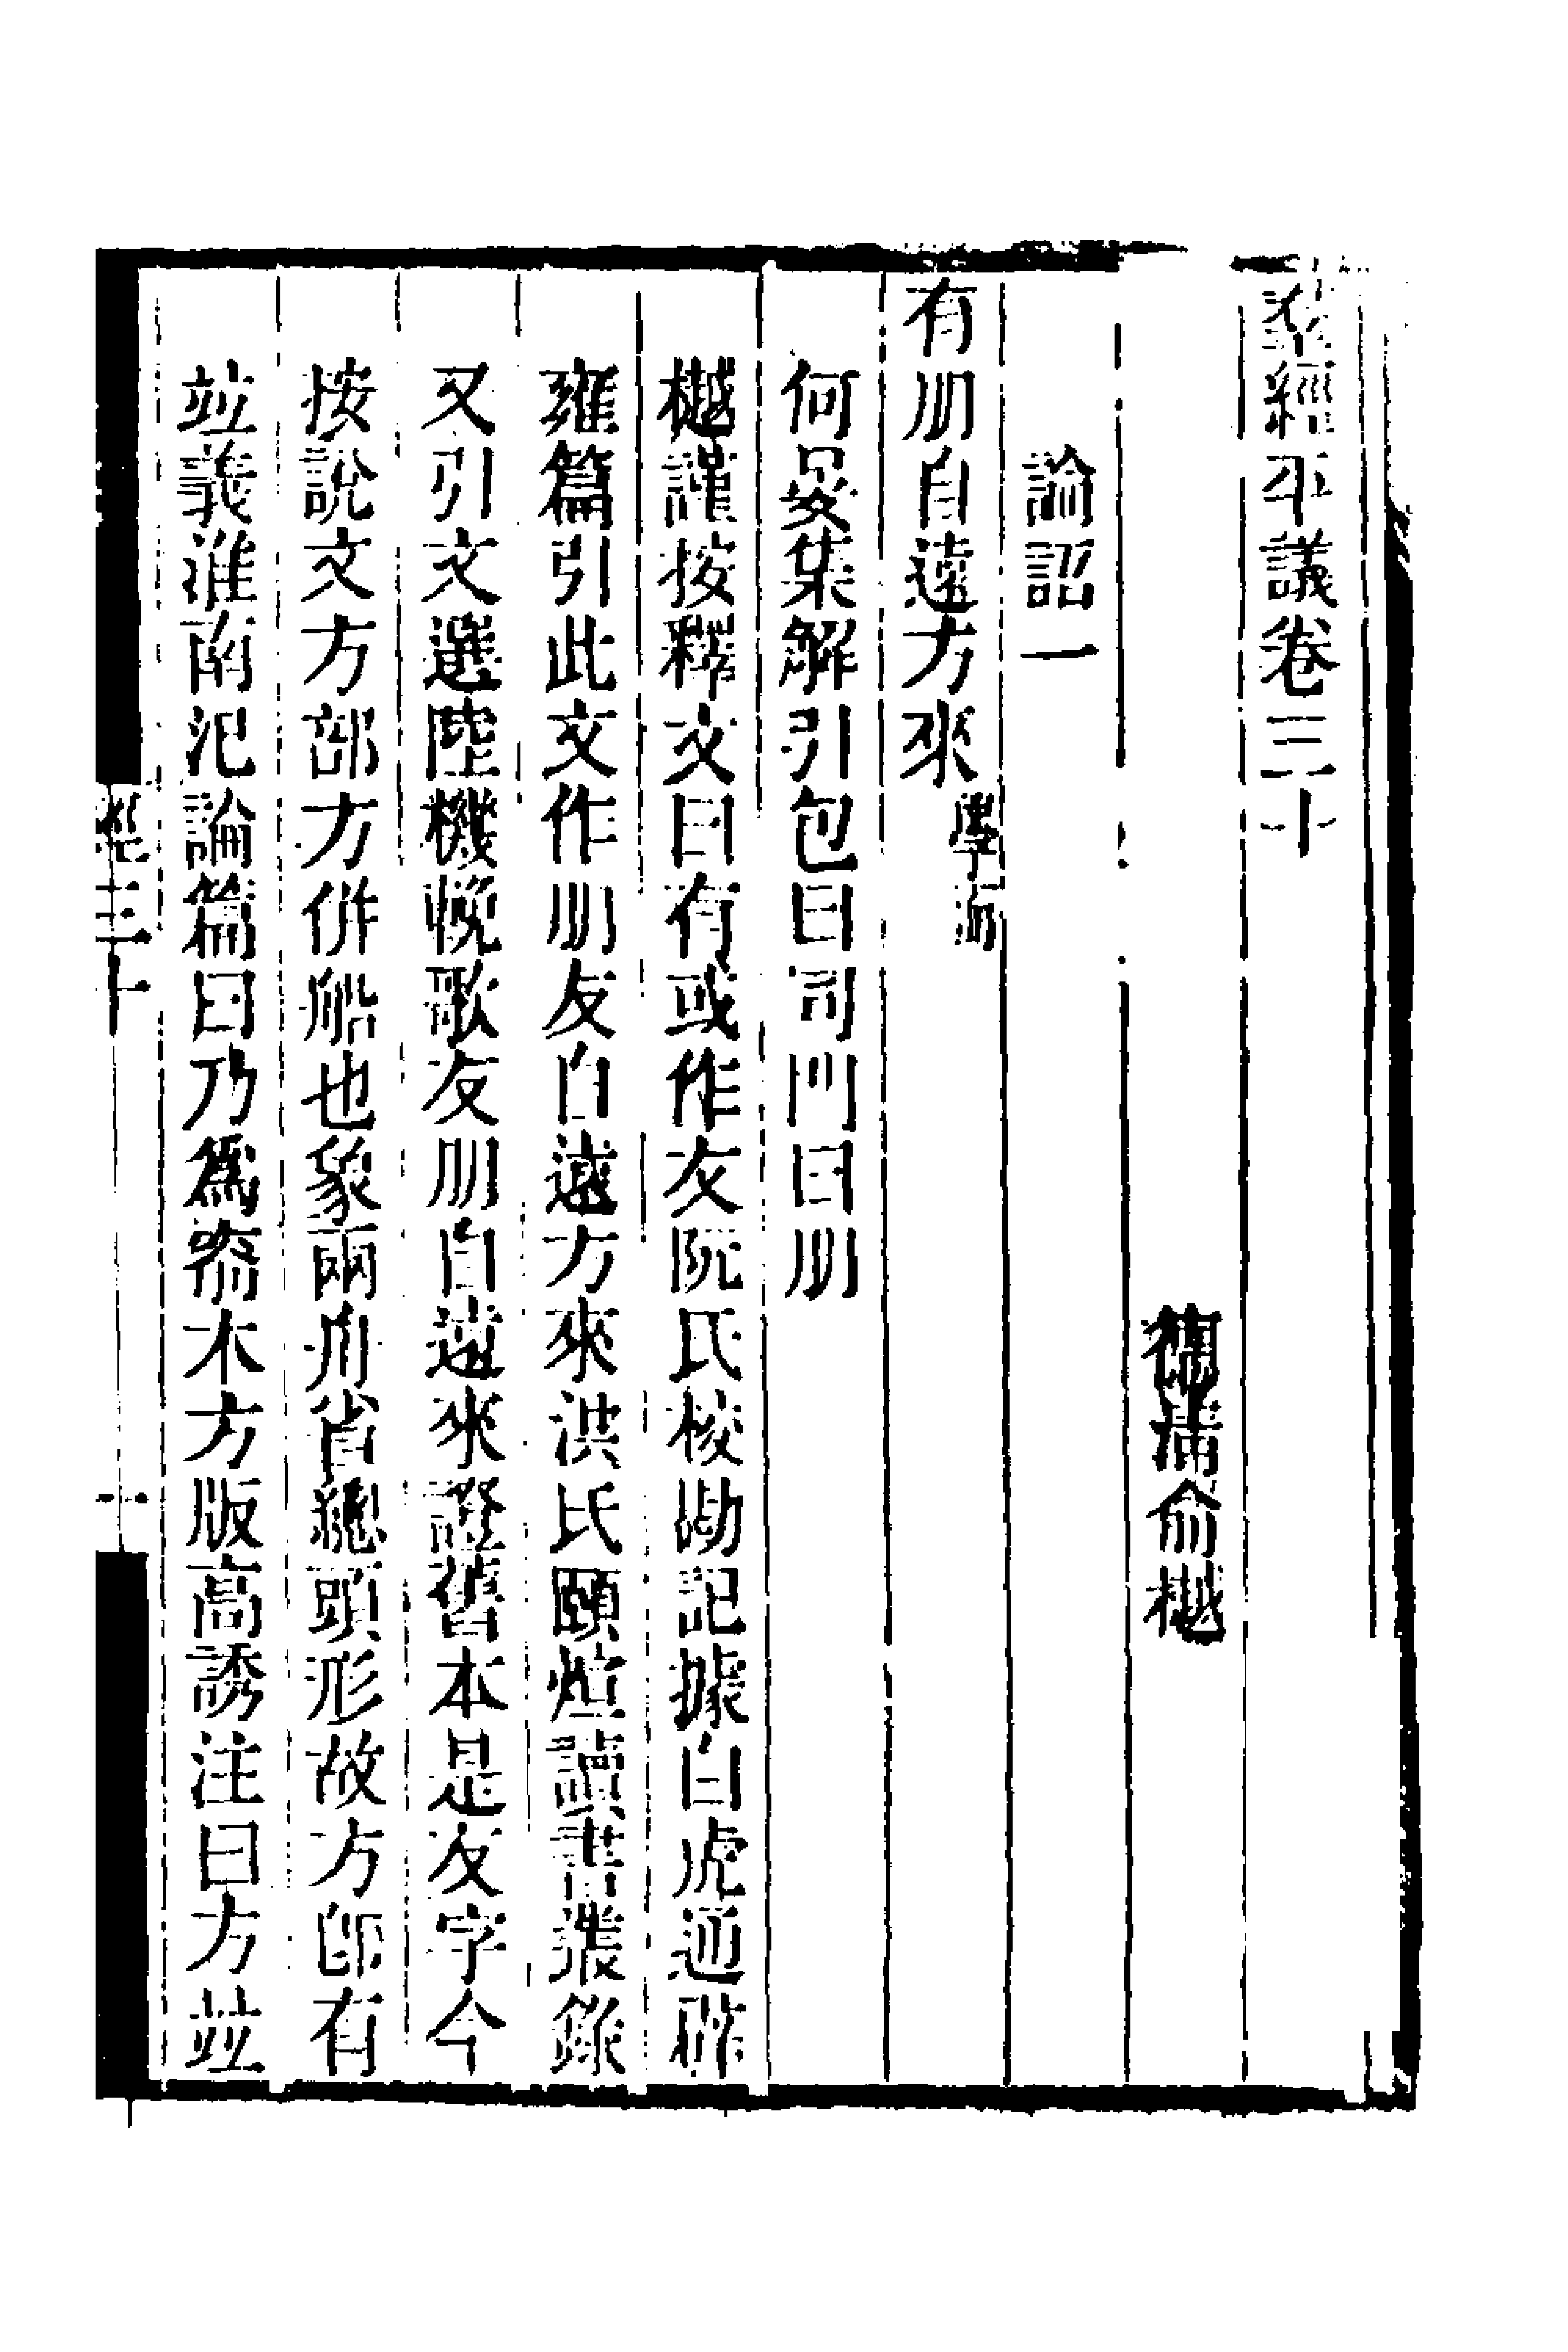 羣經平議卷三十
德清俞樾
論語一
有朋自遠方來學而
何晏集解引包曰同門曰朋
樾謹按釋文曰有或作友阮氏校勘記據白虎通辟
雍篇引此文作朋友自遠方來洪氏頤煊讀書叢錄
又引文選陸機輓歌友朋自遠來證舊本是友字今
按說文方部方倂船也象兩舟省總頭形故方卽有
竝義淮南氾論篇曰乃爲窬木方版高誘注曰方竝
經三十
一